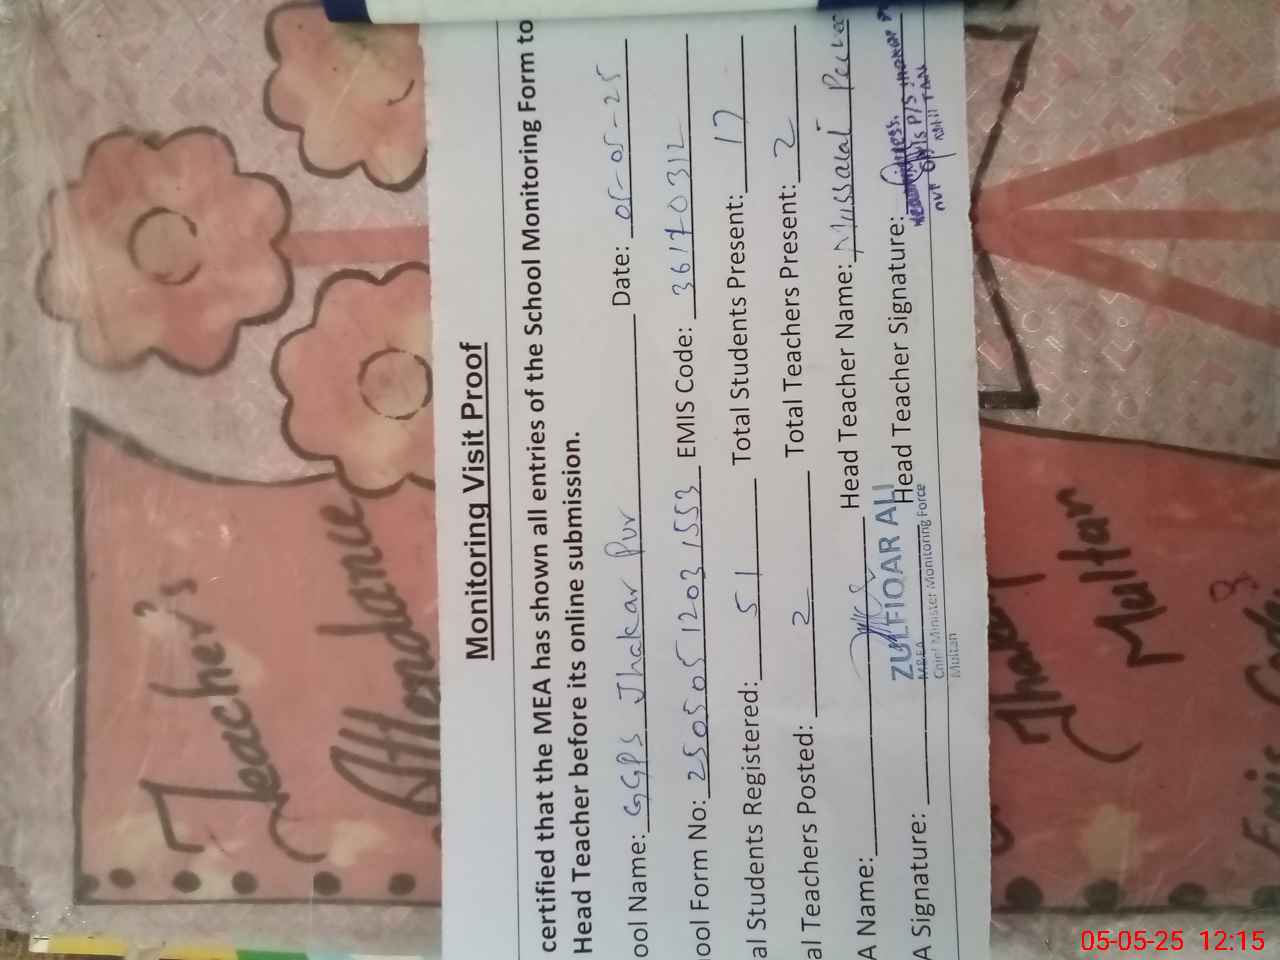 Monitoring Visit Proof
certified that the MEA has shown all entries of the School Monitoring Form to
Head Teacher before its online submission.
ool Name: GGPS Jhakar Pur Date: 05-05-25
ool Form No: 250505 1203 1553 EMIS Code: 36170312
al Students Registered: 51 Total Students Present: 17
al Teachers Posted: 2 Total Teachers Present: 2
A Name: Head Teacher Name: Mussarat
A Signature: Head Teacher Signature:
ZULFIQAR ALI
M&EA
Chief Minister Monitoring Force
Multan
Headmistress.
Teacher's
Attendance
Multan
05-05-25 12:15